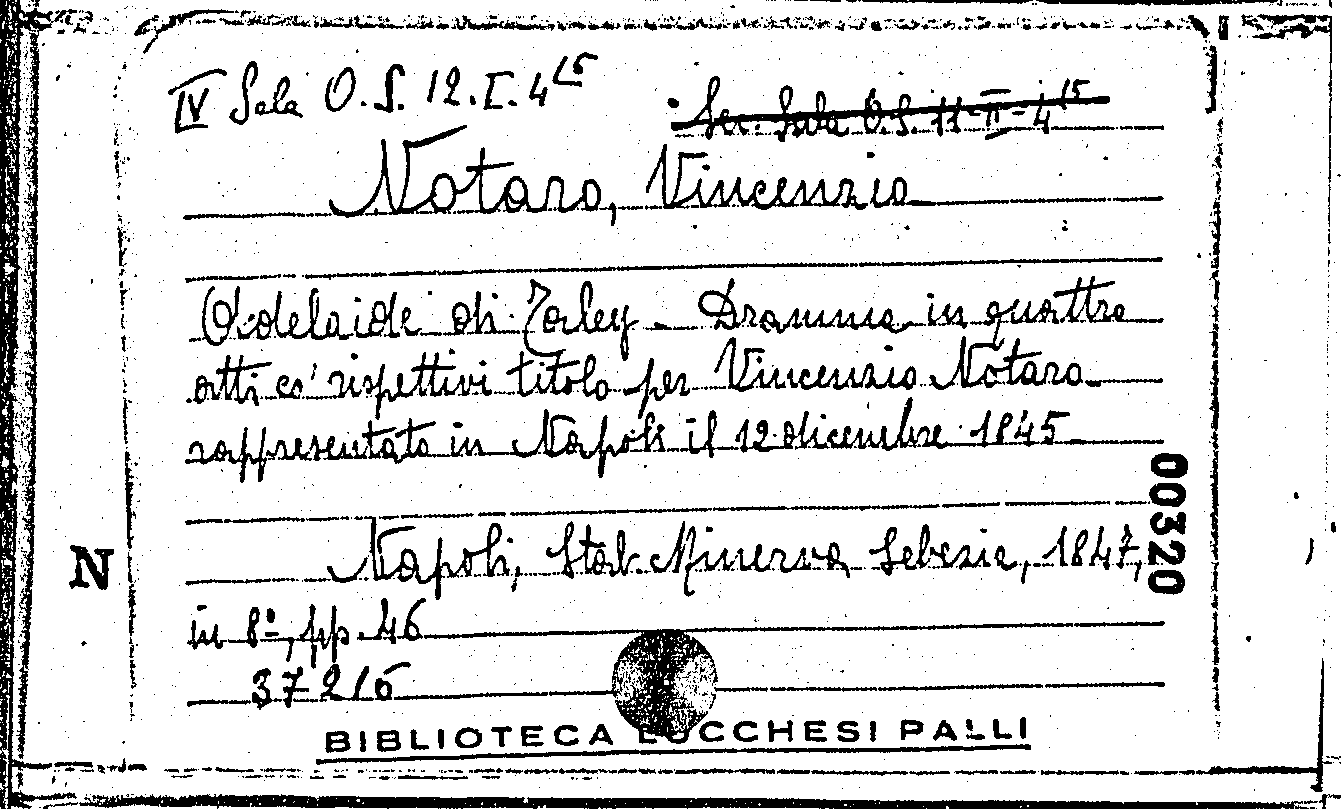 IV Sala O.S. 12.I.4¹⁵
Sec. Sala O.S. 11-II-4¹⁵
Notaro, Vincenzio
Adelaide di Torley - Dramma in quattro
atti co' rispettivi titolo per Vincenzio Notaro
rappresentato in Napoli il 12 dicembre 1845
Napoli, Stab. Minerva Sebezia, 1847,
in 8º, pp. 46
37216
00320
N
BIBLIOTECA LUCCHESI PALLI